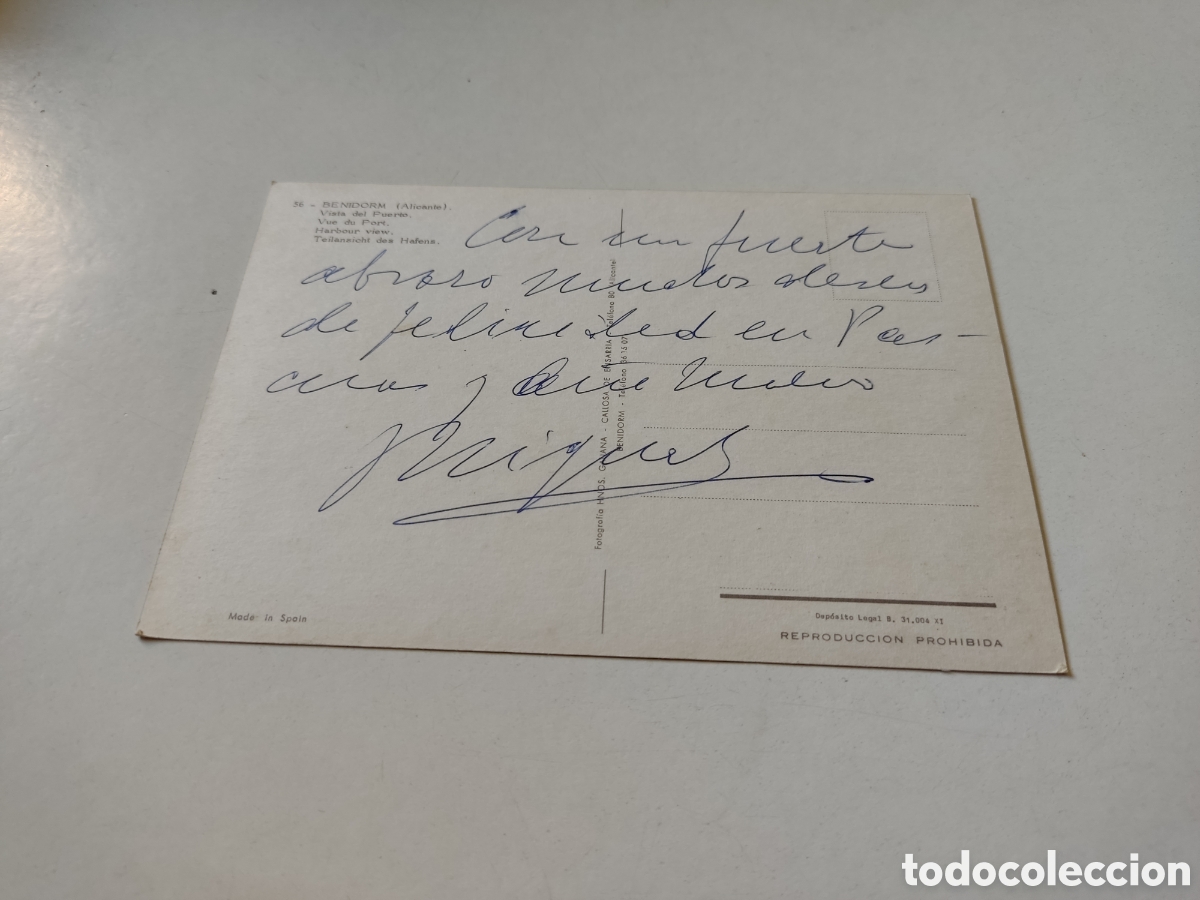 56 - BENIDORM (Alicante).
Vista del Puerto.
Vue du Port.
Harbour view.
Teilansicht des Hafens.
Con un fuerte
abrazo muchos deseos
de felicidad en Pas-
cuas y Año Nuevo
Miguel
Fotografía HNOS. GALIANA - CALLOSA DE ENSARRIA - Teléfono 80 (Alicante)
BENIDORM - Teléfono
Made in Spain
Depósito Legal B. 31.004 XI
REPRODUCCION PROHIBIDA
todocoleccion